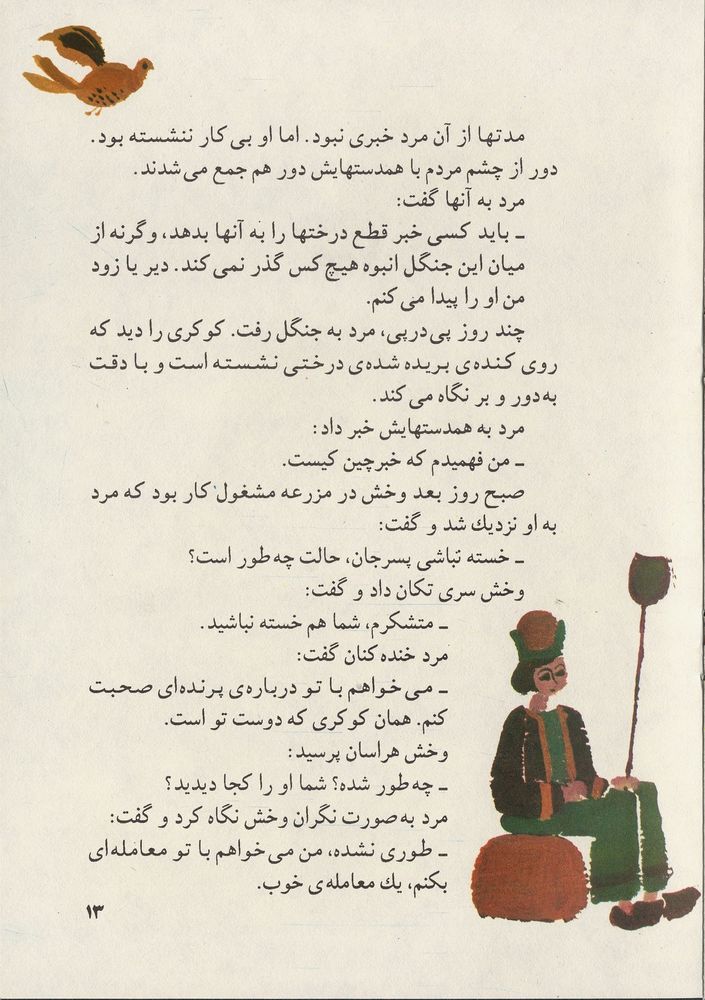 مدتها از آن مرد خبری نبود. اما او بی‌کار ننشسته بود.
دور از چشم مردم با همدستهایش دور هم جمع می‌شدند.
مرد به آنها گفت:
ـ باید کسی خبر قطع درختها را به آنها بدهد، وگرنه از
میان این جنگل انبوه هیچ‌کس گذر نمی‌کند. دیر یا زود
من او را پیدا می‌کنم.
چند روز پی‌درپی، مرد به جنگل رفت. کوکری را دید که
روی کنده‌ی بریده شده‌ی درختی نشسته است و با دقت
به‌دور و بر نگاه می‌کند.
مرد به همدستهایش خبر داد:
ـ من فهمیدم که خبرچین کیست.
صبح روز بعد وخش در مزرعه مشغول کار بود که مرد
به او نزدیك شد و گفت:
ـ خسته نباشی پسرجان، حالت چه‌طور است؟
وخش سری تکان داد و گفت:
ـ متشکرم، شما هم خسته نباشید.
مرد خنده کنان گفت:
ـ می‌خواهم با تو درباره‌ی پرنده‌ای صحبت
کنم. همان کوکری که دوست تو است.
وخش هراسان پرسید:
ـ چه‌طور شده؟ شما او را کجا دیدید؟
مرد به‌صورت نگران وخش نگاه کرد و گفت:
ـ طوری نشده، من می‌خواهم با تو معامله‌ای
بکنم، یك معامله‌ی خوب.
۱۳